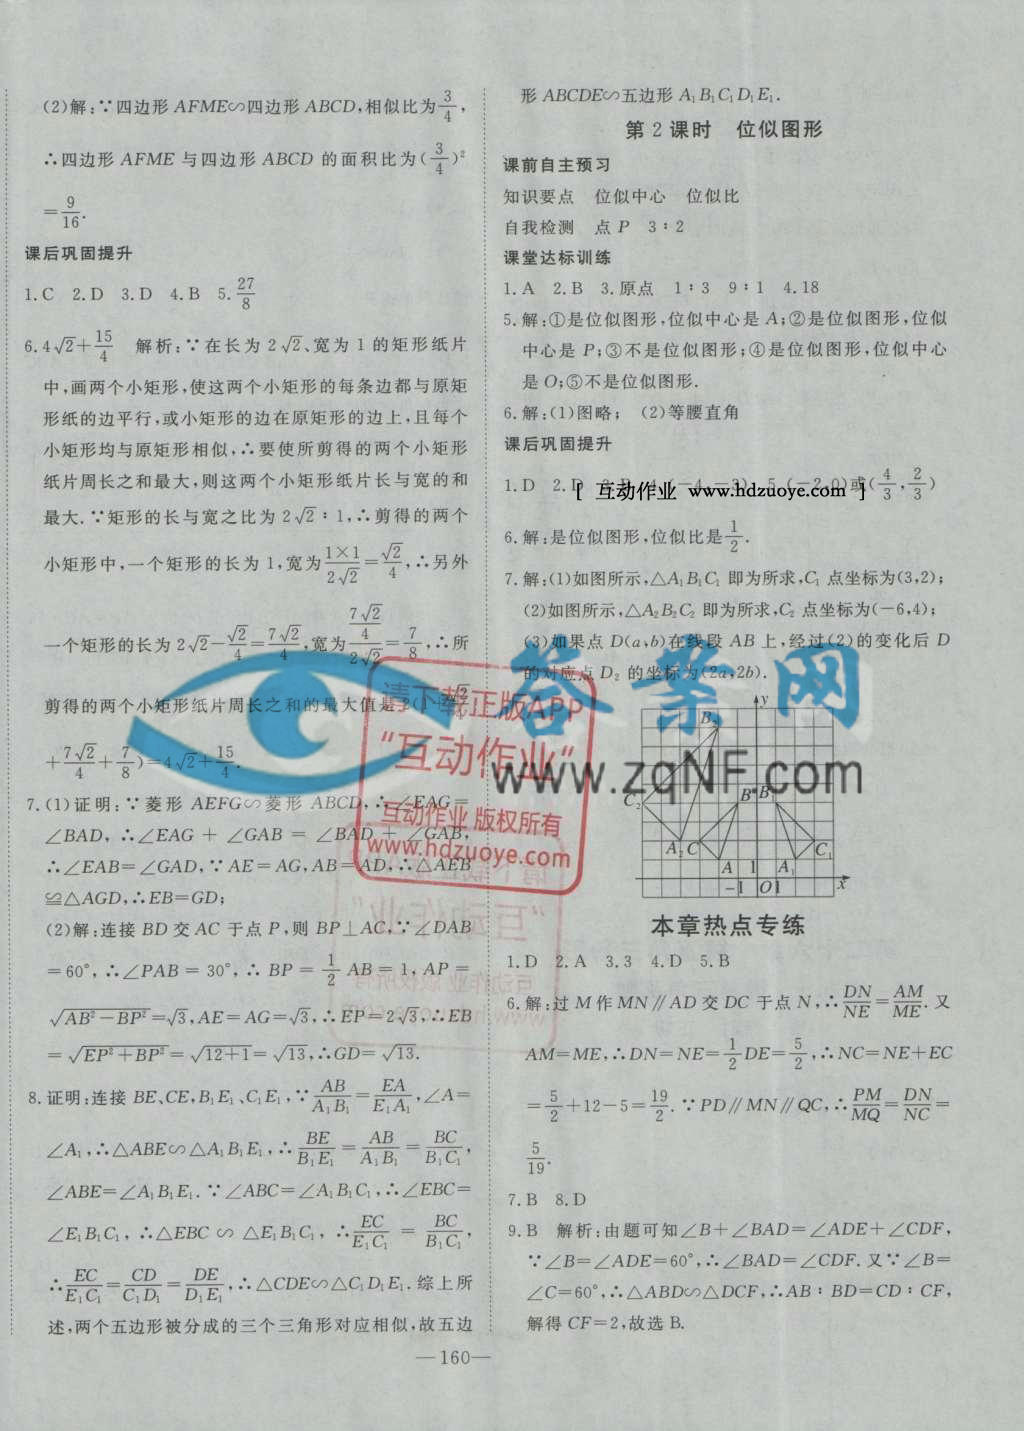 (2)解:∵四边形 AFME∽四边形 ABCD,相似比为3/4,
∴四边形 AFME 与四边形 ABCD 的面积比为(3/4)²
=9/16.
课后巩固提升
1.C 2.D 3.D 4.B 5.27/8
6.4√2+15/4 解析:∵在长为 2√2、宽为 1 的矩形纸片
中,画两个小矩形,使这两个小矩形的每条边都与原矩
形纸的边平行,或小矩形的边在原矩形的边上,且每个
小矩形均与原矩形相似,∴要使所剪得的两个小矩形
纸片周长之和最大,则这两个小矩形纸片长与宽的和
最大.∵矩形的长与宽之比为 2√2∶1,∴剪得的两个
小矩形中,一个矩形的长为1,宽为1×1/2√2=√2/4,∴另外
一个矩形的长为 2√2-√2/4=7√2/4,宽为(7√2/4)/2√2=7/8,∴所
剪得的两个小矩形纸片周长之和的最大值是2(1+√2/4
+7√2/4+7/8)=4√2+15/4.
7.(1)证明:∵菱形 AEFG∽菱形 ABCD,∴∠EAG=
∠BAD,∴∠EAG+∠GAB=∠BAD+∠GAB,
∴∠EAB=∠GAD,∵AE=AG,AB=AD,∴△AEB
≌△AGD,∴EB=GD;
(2)解:连接 BD 交 AC 于点 P,则 BP⊥AC,∵∠DAB
=60°,∴∠PAB=30°,∴BP=1/2AB=1,AP=
√AB²-BP²=√3,AE=AG=√3,∴EP=2√3,∴EB
=√EP²+BP²=√12+1=√13,∴GD=√13.
8.证明:连接 BE、CE,B₁E₁、C₁E₁,∵AB/A₁B₁=EA/E₁A₁,∠A=
∠A₁,∴△ABE∽△A₁B₁E₁,∴BE/B₁E₁=AB/A₁B₁=BC/B₁C₁,
∠ABE=∠A₁B₁E₁.∵∠ABC=∠A₁B₁C₁,∴∠EBC=
∠E₁B₁C₁,∴△EBC∽△E₁B₁C₁,∴EC/E₁C₁=BC/B₁C₁,
∴EC/E₁C₁=CD/C₁D₁=DE/D₁E₁,∴△CDE∽△C₁D₁E₁.综上所
述,两个五边形被分成的三个三角形对应相似,故五边
形 ABCDE∽五边形 A₁B₁C₁D₁E₁.
第2课时 位似图形
课前自主预习
知识要点 位似中心 位似比
自我检测 点 P 3∶2
课堂达标训练
1.A 2.B 3.原点 1∶3 9∶1 4.18
5.解:①是位似图形,位似中心是 A;②是位似图形,位似
中心是 P;③不是位似图形;④是位似图形,位似中心
是 O;⑤不是位似图形.
6.解:(1)图略;(2)等腰直角
课后巩固提升
1.D 2.D 5.(-2,0)或(4/3,2/3)
[ 互动作业 www.hdzuoye.com ]
6.解:是位似图形,位似比是1/2.
7.解:(1)如图所示,△A₁B₁C₁ 即为所求,C₁ 点坐标为(3,2);
(2)如图所示,△A₂B₂C₂ 即为所求,C₂ 点坐标为(-6,4);
(3)如果点 D(a,b)在线段 AB 上,经过(2)的变化后 D
的对应点 D₂ 的坐标为(2a,2b).
y
B₂
C₂
B B₁
A₂ C C₁
A A₁
-1 O 1 x
1
本章热点专练
1.D 2.A 3.3 4.D 5.B
6.解:过 M 作 MN∥AD 交 DC 于点 N,∴DN/NE=AM/ME.又
AM=ME,∴DN=NE=1/2DE=5/2,∴NC=NE+EC
=5/2+12-5=19/2.∵PD∥MN∥QC,∴PM/MQ=DN/NC=
5/19.
7.B 8.D
9.B 解析:由题可知∠B+∠BAD=∠ADE+∠CDF,
∵∠B=∠ADE=60°,∴∠BAD=∠CDF.又∵∠B=
∠C=60°,∴△ABD∽△DCF,∴AB∶BD=CD∶CF,
解得 CF=2,故选 B.
—160—
答案网
www.zqNF.com
请下载正版APP
“互动作业”
互动作业 版权所有
www.hdzuoye.com